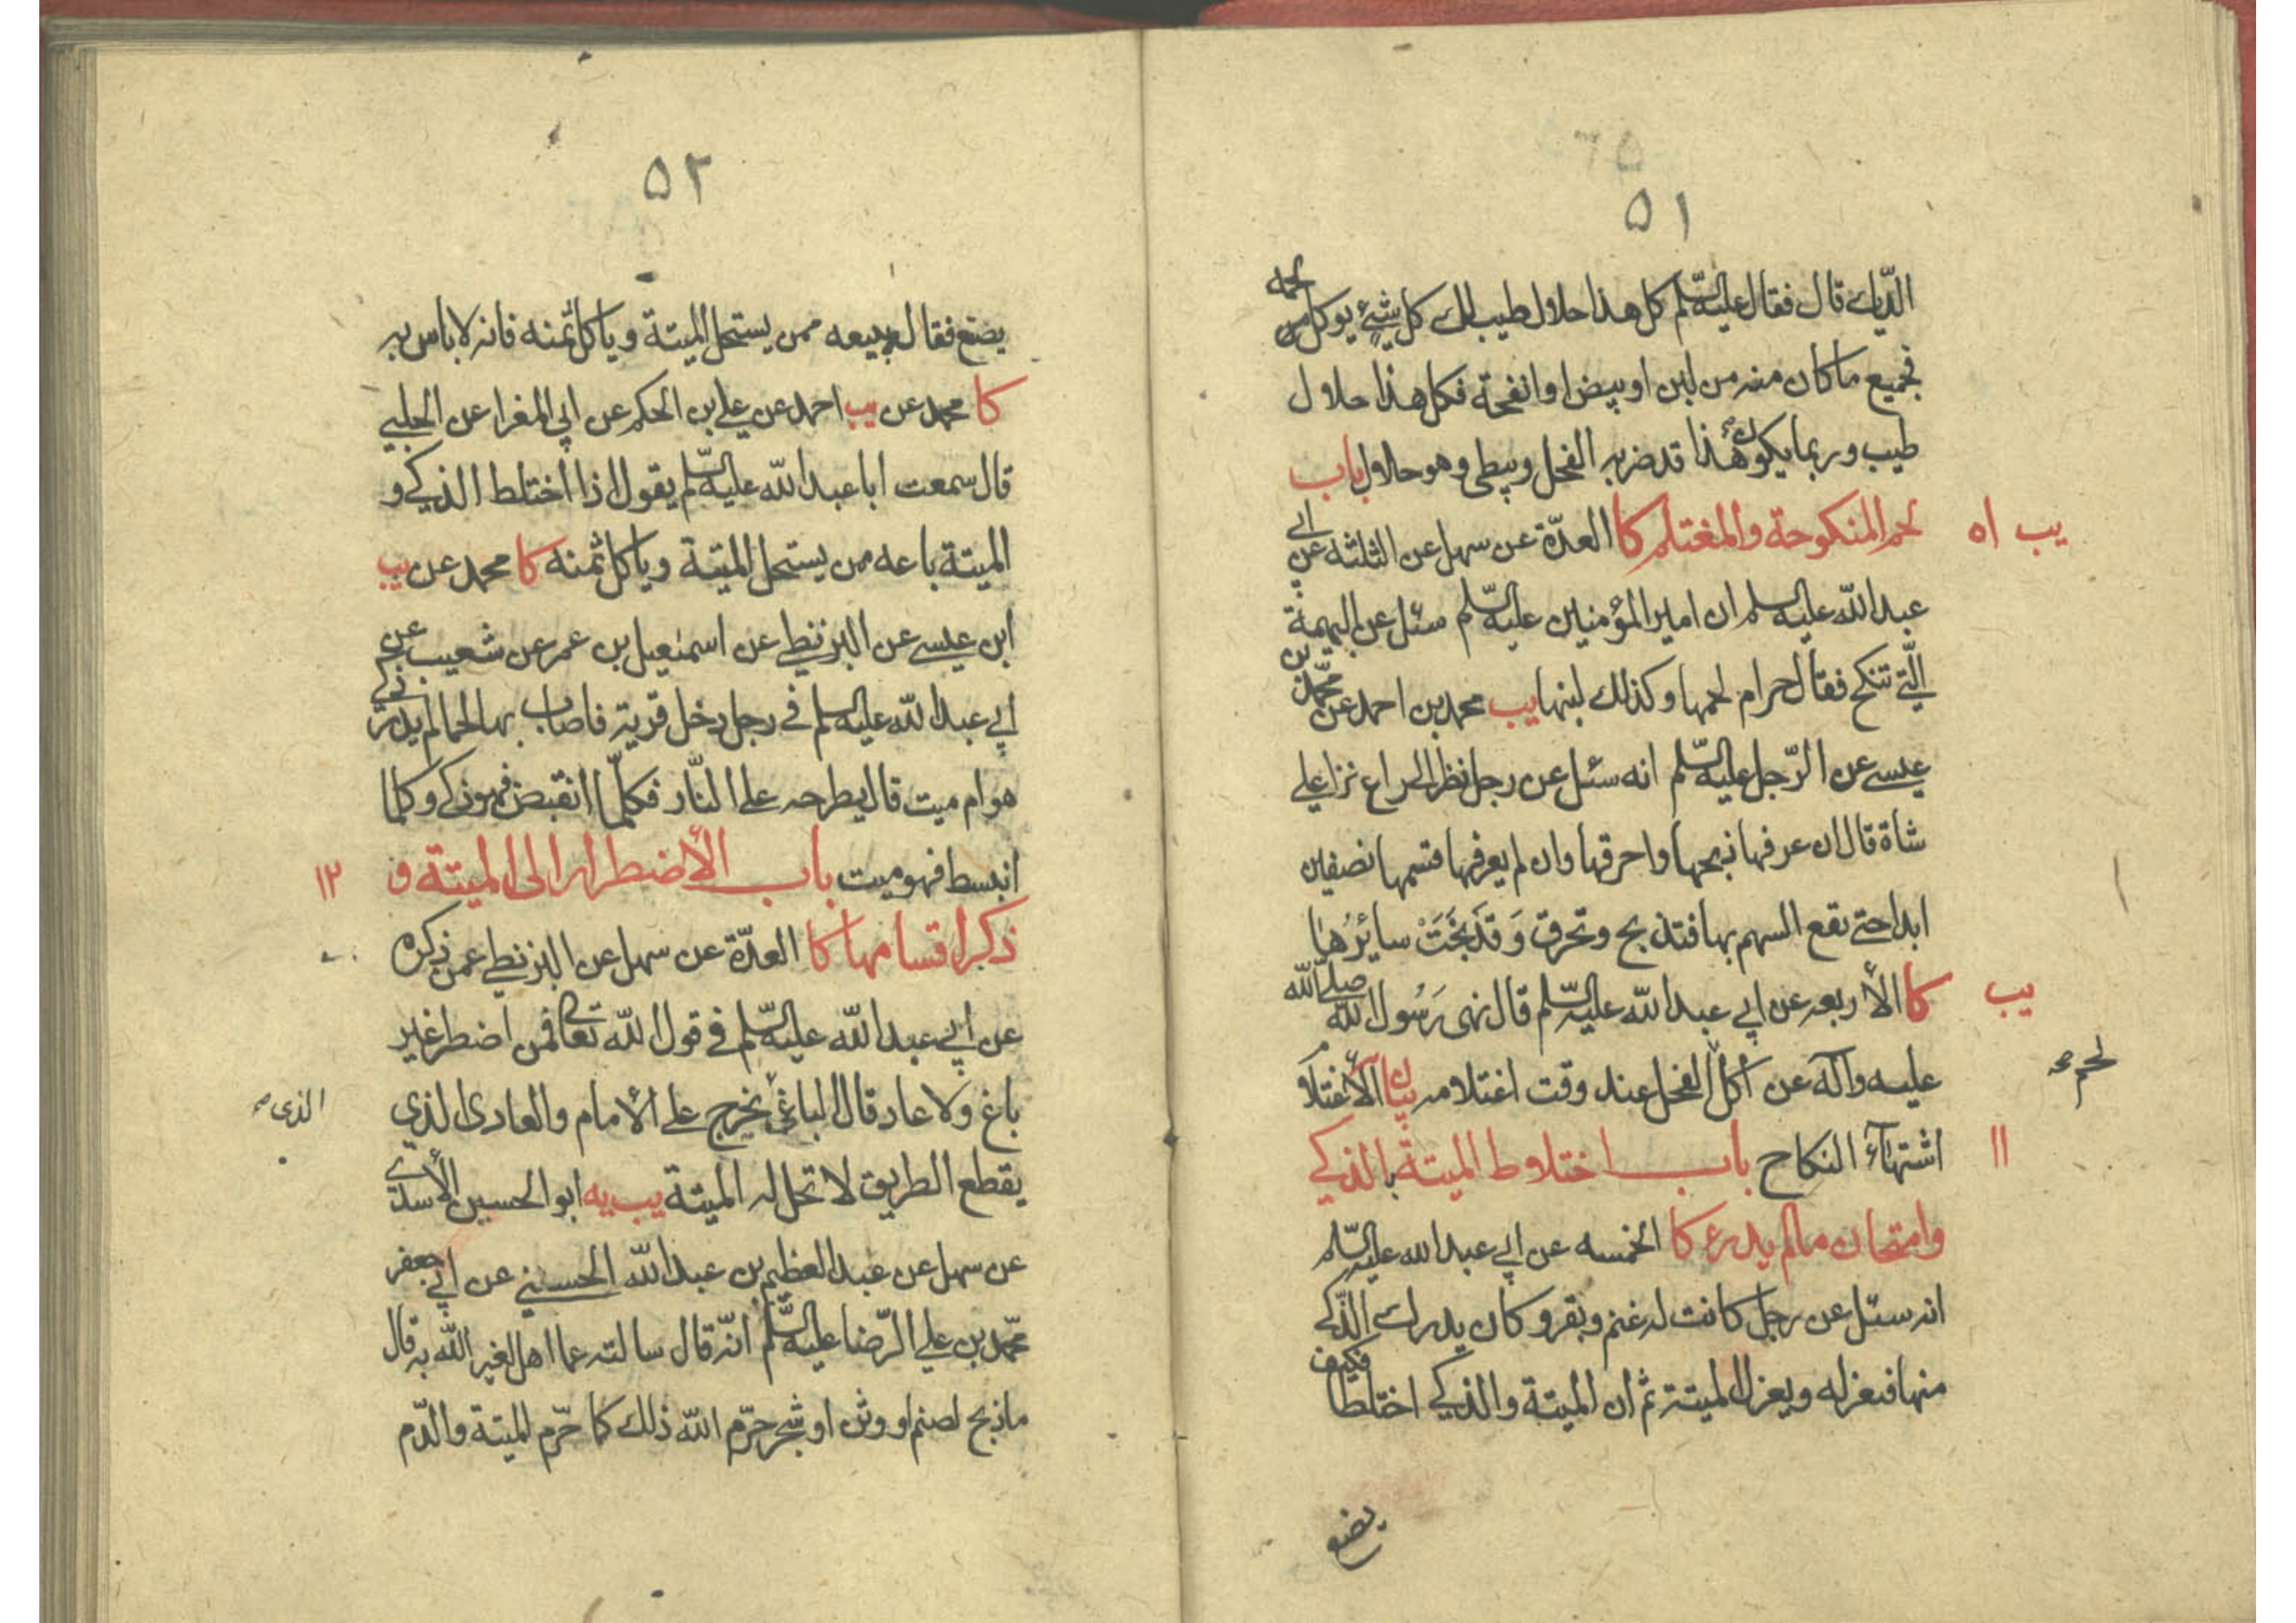 ٥١
الدّيك قال فقال عليه السّلم كل هذا حلال طيب لك كل شيءٍ يوكل لحمه
فجميع ما كان منه من لبن او بيض او انفحة فكل هذا حلال
طيب وربما يكون هذا قد ضربه الفحل ويبطى وهو حلال باب
يب ١٠ لحم المنكوحة والمغتلم كا العدّة عن سهل عن الثلثة عن ابي
عبد الله عليه السلم ان امير المؤمنين عليه السّلم سئل عن البهيمة
الّتي تنكح فقال حرام لحمها وكذلك لبنها يب محمد بن احمد عن محمّد بن
عيسى عن الرّجل عليه السّلم انه سئل عن رجل نظر الى راع نزا على
شاة قال ان عرفها ذبحها واحرقها وان لم يعرفها قسمها نصفين
ابدا حتى يقع السهم بها فتذبح وتحرق وَقَد نَجَتْ سائرُها
يب كا الأربعه عن ابي عبد الله عليه السّلم قال نهى رَسُول الله صلى الله
عليه وآله عن اكل الفحل عند وقت اغتلامه بيان الأغتلام
لحم صح
١١ اشتهاء النكاح باب اختلاط الميتة بالذكي
وامتحان مالم يدرء كا الخمسه عن ابي عبد الله عليه السّلم
انه سئل عن رجل كانت له غنم وبقر وكان يدرك الذّكي
منها فيعزله ويعزل الميتة ثم ان الميتة والذكي اختلطا فكيف
يصنع
٥٢
يصنع فقال يبيعه ممن يستحل الميتة وياكل ثمنه فانه لا باس به
كا محمد عن يب احمد عن علي بن الحكم عن ابي المغرا عن الحلبي
قال سمعت ابا عبد الله عليه السّلم يقول اذا اختلط الذكي و
الميتة باعه ممن يستحل الميتة وياكل ثمنه كا محمد عن يب
ابن عيسى عن البزنطي عن اسمعيل بن عمر عن شعيب عن
ابي عبد الله عليه السلم في رجل دخل قرية فاصاب بها لحما لم يدر اذكي
هو ام ميت قال يطرحه على النّار فكلّما انقبض فهو ذكي وكلما
انبسط فهو ميت باب الأضطرار الى الميتة و ١٢
ذكر اقسامها كا العدّة عن سهل عن البزنطي عمن ذكره
عن ابي عبد الله عليه السّلم في قول الله تعالى فمن اضطر غير
باغ ولا عاد قال الباغي يخرج على الأمام والعادى الذي
الذى صح
يقطع الطريق لا تحل له الميتة يب يه ابو الحسين الأسدي
عن سهل عن عبد العظيم بن عبد الله الحسني عن ابي جعفر
محّمد بن علي الرّضا عليه السّلم انّه قال سالته عما اهل لغير الله به قال
ما ذبح لصنم او وثن او شجر حرّم الله ذلك كما حرّم الميتة والدّم